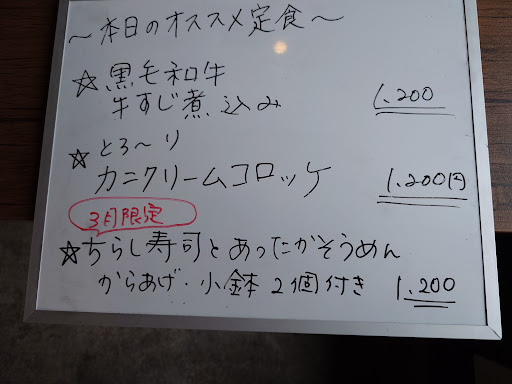 ～本日のオススメ定食～
☆黒毛和牛
牛すじ煮込み 1,200
☆とろ～り
カニクリームコロッケ 1,200円
3月限定
☆ちらし寿司とあったかそうめん
からあげ・小鉢2個付き 1,200